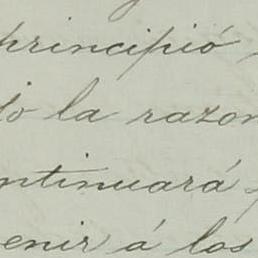 principió,
to la razon
ntinuará
enir á los